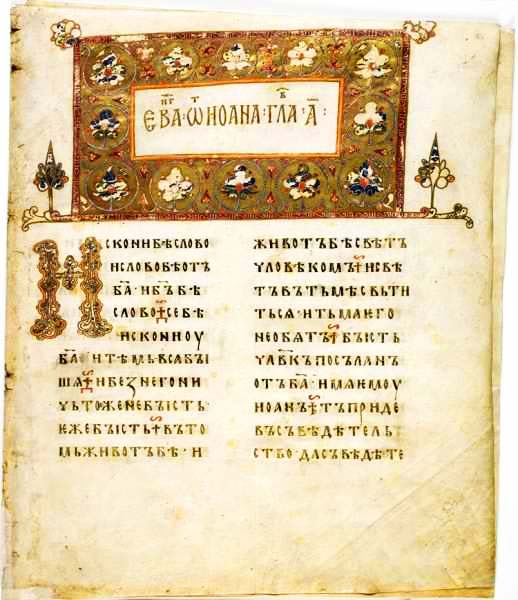 ЄВАⷩ҇ⷢ·Ѡⷮ ИОАНА·ГЛАⷡ·А҃:
ИСКОНИБѢСЛОВО
ИСЛОВОБѢОТЪ
БА҃·ИБЪ҃БѢ
СЛОВО·СЕБѢ
ИСКОНИОУ
БА҃·ИТѢМЬВСАБЪІ
ШѦ·ИБЕЗНЕГОНИ
ЧЬТОЖЕНЕБЪІСТЬ·
ЕЖЕБЪІСТЬ·ВЪТО
МЬЖИВОТЪБѢ·И
ЖИВОТЪБѢСВѢТЪ
ЧЛОВѢКОМЪ·ИСВѢ
ТЪВЪТЬМѢСВЬТИ
ТЬСѦ·ИТЬМАѤГО
НЕОБѦТЪ·БЪІСТЬ
ЧЛВ҃КЪПОСЪЛАНЪ
ОТЪБА҃·ИМѦѤМОУ
ИОАНЪ·ТЪПРИДЕ
ВЪСЪВѢДѢТЕЛЬ
СТВО·ДАСЪВѢДѢТЕ